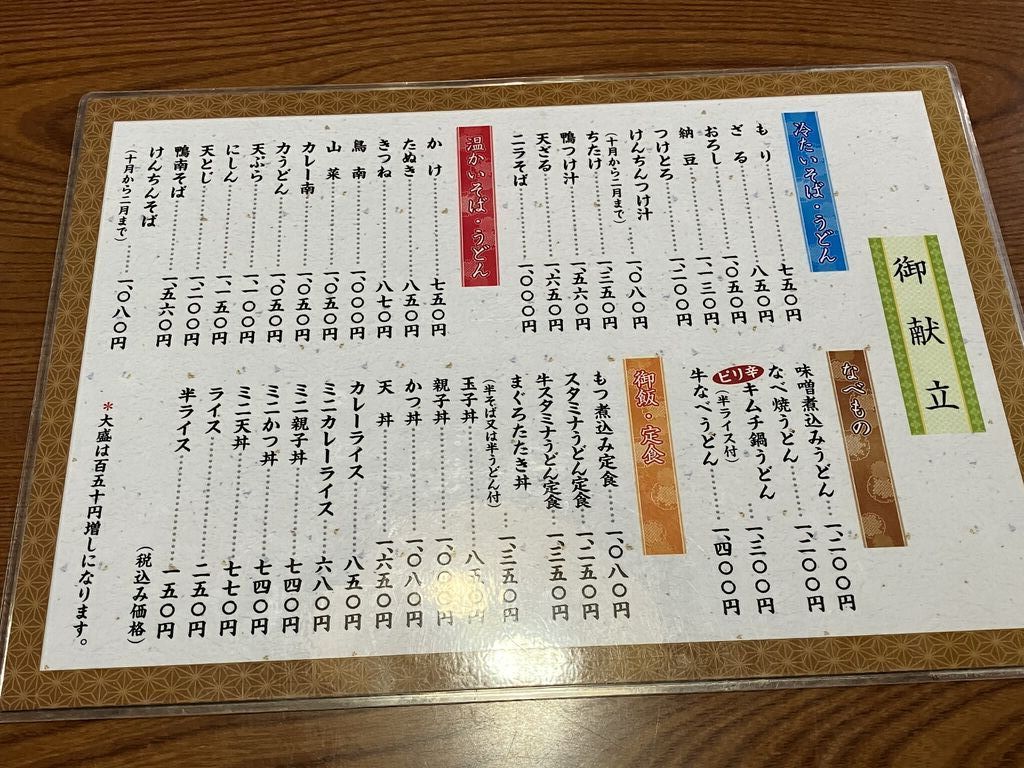 御献立
冷たいそば・うどん
もり 七五〇円
ざる 八五〇円
おろし 一、〇五〇円
納豆 一、一三〇円
つけとろ 一、二〇〇円
けんちんつけ汁 一、〇八〇円
(十月から二月まで)
ちたけ 一、三五〇円
鴨つけ汁 一、五六〇円
天ざる 一、六五〇円
ニラそば 一、〇〇〇円
温かいそば・うどん
かけ 七五〇円
たぬき 八五〇円
きつね 八七〇円
鳥南 一、〇〇〇円
山菜 一、〇〇〇円
カレー南 一、〇五〇円
力うどん 一、〇五〇円
天ぷら 一、一〇〇円
にしん 一、一五〇円
天とじ 一、二〇〇円
鴨南そば 一、五六〇円
けんちんそば
(十月から二月まで) 一、〇八〇円
なべもの
味噌煮込みうどん 一、二〇〇円
なべ焼うどん 一、二〇〇円
ピリ辛キムチ鍋うどん 一、三〇〇円
(半ライス付)
牛なべうどん 一、四〇〇円
御飯・定食
もつ煮込み定食 一、〇八〇円
スタミナうどん定食 一、二五〇円
牛スタミナうどん定食 一、三五〇円
まぐろたたき丼 一、三五〇円
(半そば又は半うどん付)
玉子丼 八五〇円
親子丼 一、〇〇〇円
かつ丼 一、〇八〇円
天丼 一、六五〇円
カレーライス 八五〇円
ミニカレーライス 六八〇円
ミニ親子丼 七四〇円
ミニかつ丼 七四〇円
ミニ天丼 七七〇円
ライス 二五〇円
半ライス 一五〇円
(税込み価格)
*大盛は百五十円増しになります。